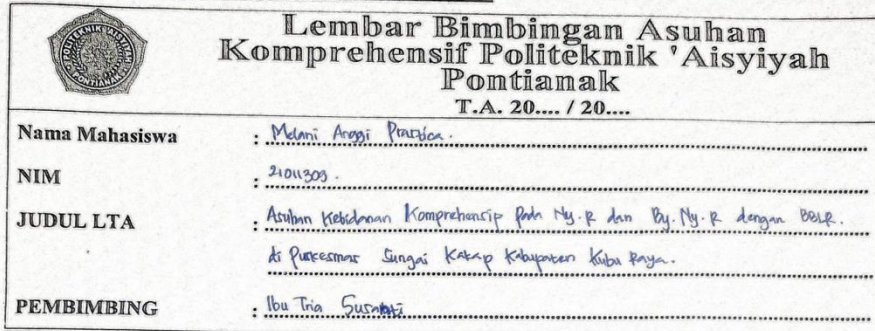 POLITEKNIK 'AISYIYAH
PONTIANAK
Lembar Bimbingan Asuhan
Komprehensif Politeknik 'Aisyiyah
Pontianak
T.A. 20.... / 20....
Nama Mahasiswa : Melani Anggi Prastica.
NIM : 21011309.
JUDUL LTA : Asuhan Kebidanan Komprehensip Pada Ny. R dan By. Ny. R dengan BBLR.
di Puskesmas Sungai Kakap Kabupaten Kubu Raya.
PEMBIMBING : Ibu Tria